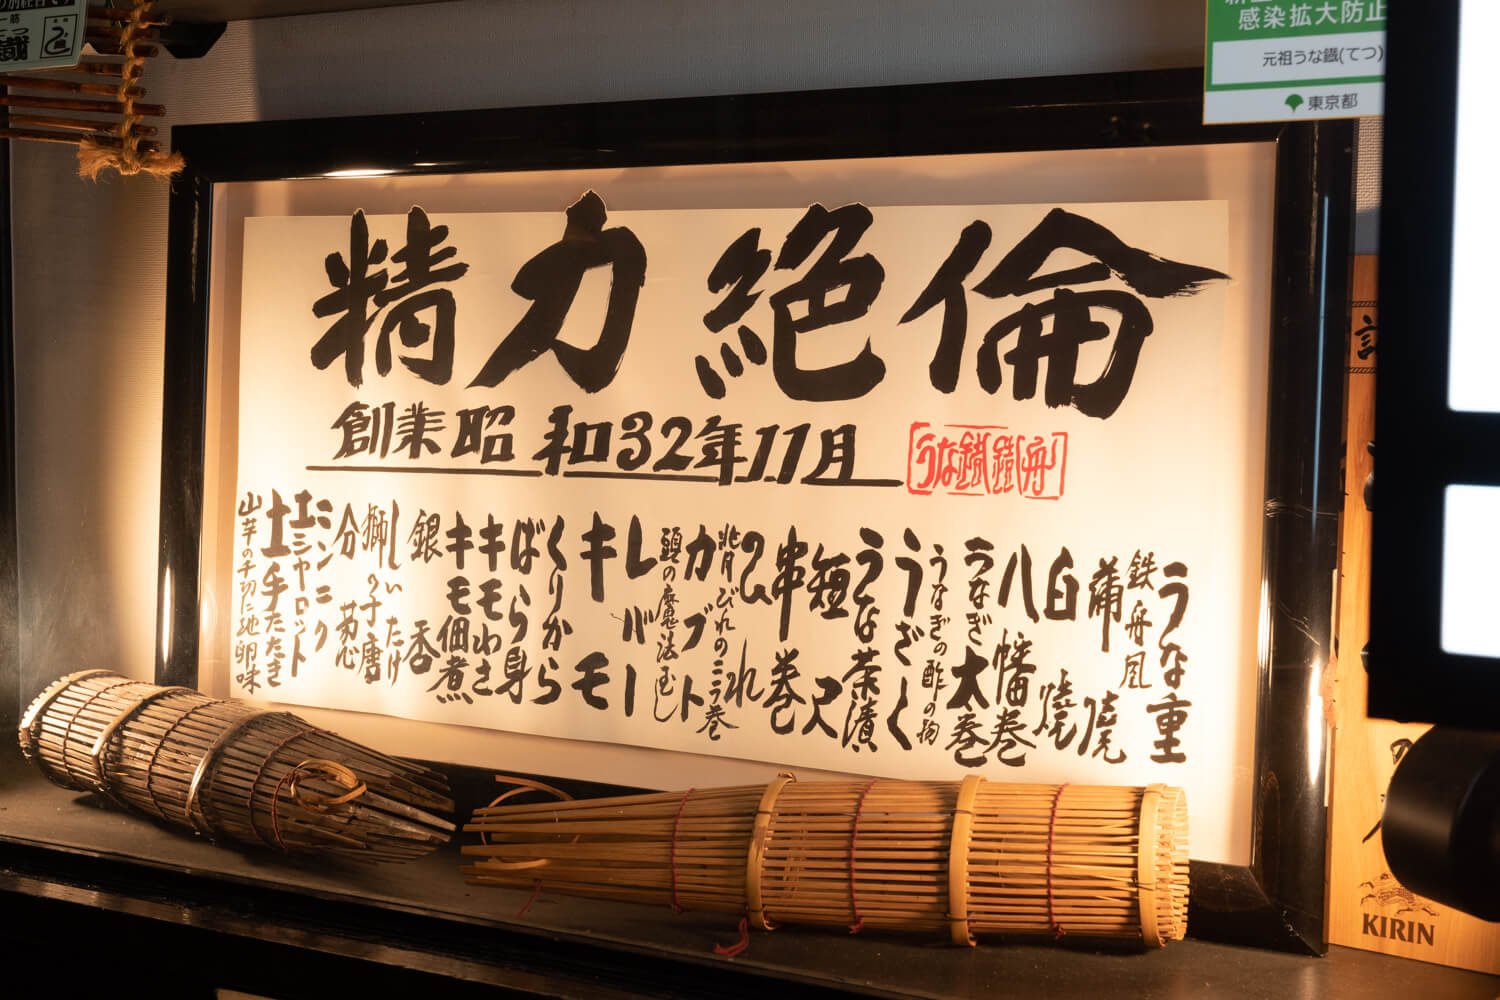 感染拡大防止
元祖うな鐡(てつ)
東京都
精力絶倫
創業昭和32年11月
うな鐵
うな重
鉄舟風
蒲焼
白焼
八幡巻
うなぎ太巻
うなぎの酢の物
うざく
うな茶漬
短尺
串巻
ひれ
背びれのニラ巻
カブト
頭の魔法むし
レバー
キモ
くりから
ばら身
キモわさ
キモ佃煮
銀杏
しいたけ
獅子唐
ニンニク
エシャロット
土手たたき
山芋の千切に地卵味
KIRIN